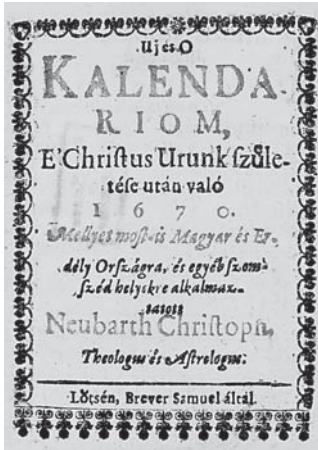 Uj és O
KALENDA-
RIOM,
E'Chriſtus Urunk ſzůle-
téſe után való
1 6 7 0.
Mellyet moſt-is Magyar és Er-
dély Orſzágra, és egyéb ſzom-
ſzéd helyekre alkalmaz-
tatott
Neubarth Chriſtoph,
Theologus és Aſtrologus.
Lőtsén, Brever Samuel által.